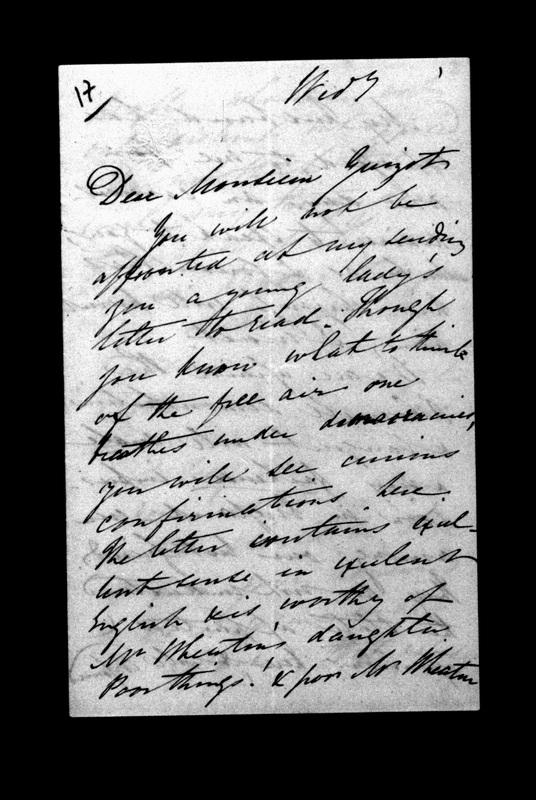 17
Wedy
Dear Monsieur Guizot
You will not be
affronted at my sending
you a young lady's
letter to read. Though
you know what to think
of the free air one
breathes under democracies,
you will see curious
confirmations here.
The letter contains exel-
lent sense in exelent
English & is worthy of
Mr Wheaton's daughter.
Poor things! & poor Mr Wheaton